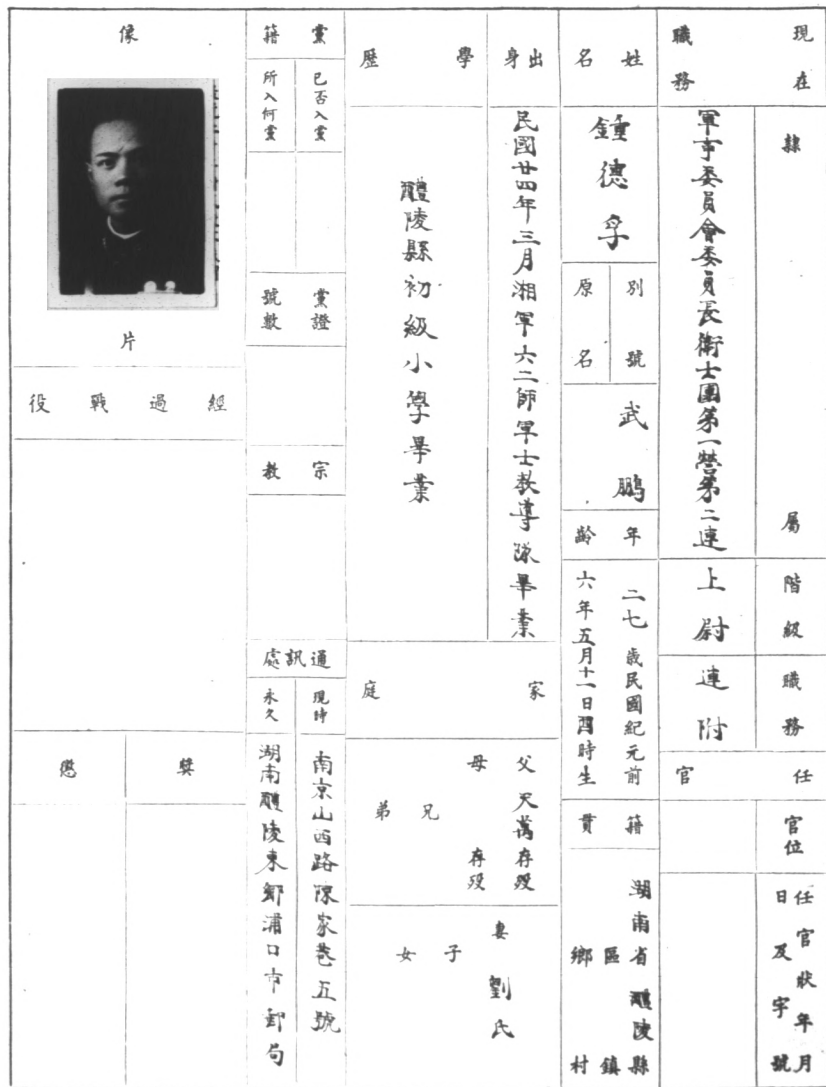 現在職務
隸屬
軍事委員會委員長衛士團第一營第二連
階級
上尉
職務
連附
任官
官位
任官狀年月日及字號
姓名
鍾德孚
別號
原名
武鵬
年齡
二七歲民國紀元前
六年五月十一日酉時生
籍貫
湖南省醴陵縣
區鎮
鄉村
出身
民國廿四年三月湘軍六二師軍士教導隊畢業
學歷
醴陵縣初級小學畢業
家庭
父天萬存歿
母存歿
兄
弟
妻劉氏
子
女
黨籍
已否入黨
所入何黨
黨證
號數
宗教
通訊處
現時
南京山西路陳家巷五號
永久
湖南醴陵東鄉浦口市郵局
像
片
經過戰役
獎
懲